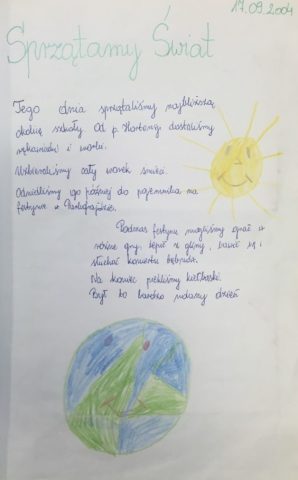 17.09.2004
Sprzątamy Świat
Tego dnia sprzątaliśmy najbliższą
okolicę szkoły. Od p. Hortensji dostaliśmy
rękawiczki i worki.
Uzbieraliśmy cały worek śmieci.
Odnieśliśmy go później do pojemnika na
festynie w
Podczas festynu mogliśmy grać w
różne gry, lepić z gliny, bawić się i
słuchać koncertu
Na koniec piekliśmy kiełbaski.
Był to bardzo udany dzień